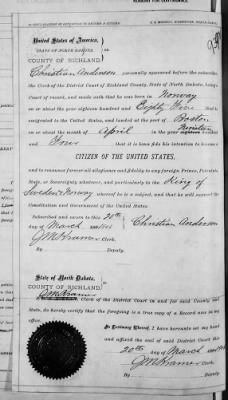 United States of America,
STATE OF NORTH DAKOTA
COUNTY OF RICHLAND
Christian Anderson personally appeared before the subscriber,
the Clerk of the District Court of Richland County, State of North Dakota, being a
Court of record, and made oath that he was born in Norway
on or about the year eighteen hundred and Eighty Four that he
emigrated to the United States, and landed at the port of Boston
on or about the month of April in the year
and Four that it is bona fide his intention to become a
CITIZEN OF THE UNITED STATES,
and to renounce forever all allegiance and fidelity to any foreign Prince, Potentate,
State, or Sovereignty whatever, and particularly to the King of
Sweden & Norway whereof he is a subject, and that he will support the
Constitution and Government of the United States.
Subscribed and sworn to this 20th
day of March Christian Anderson
Clerk.
By Deputy.
State of North Dakota,
COUNTY OF RICHLAND
Clerk of the District Court in and for said County and
State, do hereby certify that the foregoing is a true copy of a Record now in my
office.
In Testimony Whereof, I have hereunto set my hand
and affixed the seal of said District Court this
20th day of March
Clerk.
By Deputy.